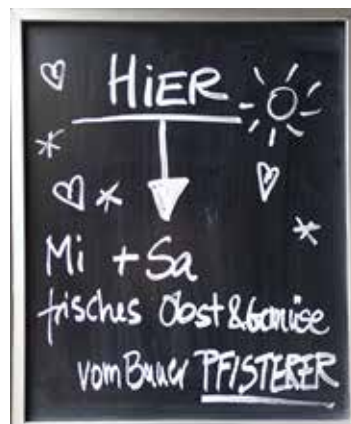 HiER
Mi + Sa
frisches Obst & Gemüse
vom Bauer PFISTERER